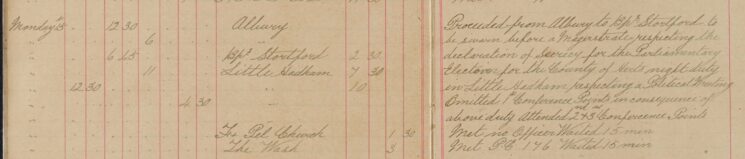 Monday 15 12 30 Albury Proceeded from Albury to Bp's Stortford to
6 be sworn before a Magistrate respecting the
6 45 Bp's Stortford 2 30 declaration of Secrecy for the Parliamentary
11 Little Hadham 7 30 Election for the County of Herts night duty
12.30 10 in Little Hadham respecting a Political Meeting
4 30 Omitted 1st Conference Points in consequence of
above duty Attended 2nd & 3rd Conference Points
The Pel. Church 1 30 Met no Officer Waited 15 min
The Wash 3 Met P.C. 176 Waited 15 min